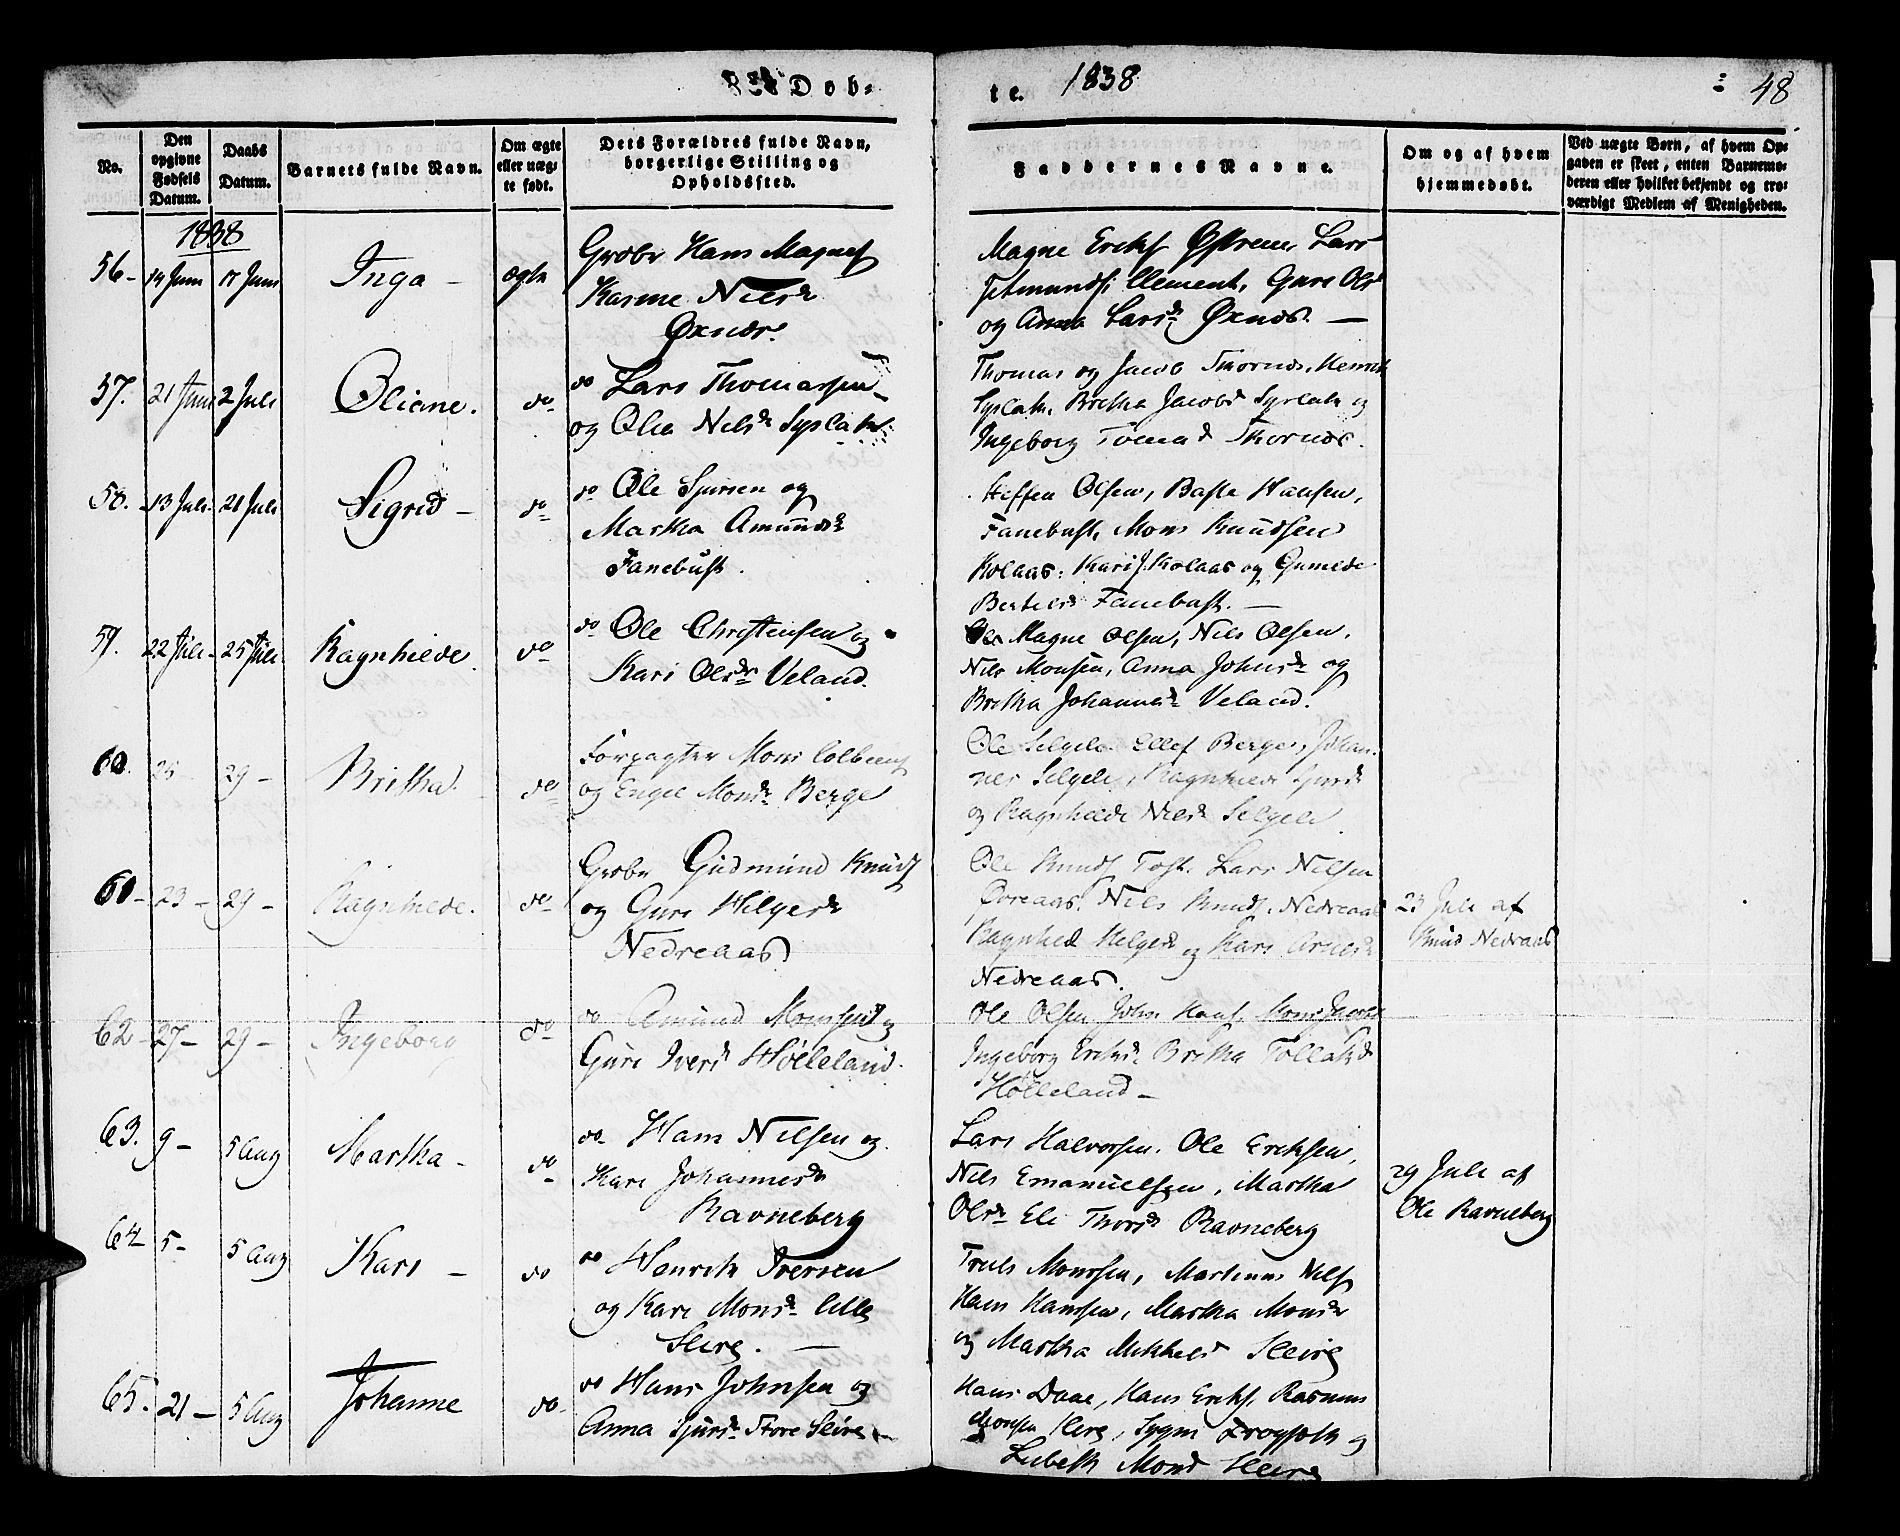 Døb-
te. 1838
48
No.
Den opgivne Fødsels Datum.
Daabs Datum.
Barnets fulde Navn.
Om ægte eller uægte født.
Dets Forældres fulde Navn, borgerlige Stilling og Opholdssted.
Faddernes Navne.
Om og af hvem hjemmedøbt.
Ved uægte Børn, af hvem Opgaven er skeet, enten Barnemoderen eller hvilket bekjendt og troværdigt Medlem af Menigheden.
1838
56- 14 Juni 17 Juni Inga - ægte
Grdbr Hans Magnes
Karine Nilsd
Øxnæs.
Magne Eriks Lars
Clement, Guro Ols
og Anna Larsd Øxnæs. —
57. 21 Juni 2 Juli Oliane. do
do Lars Thomassen
og Olia Nilsd Syslak
Thomas og Jacob Thornæs, Henrik
Syslak, Britha Jacobsd Syslak og
Ingeborg Tomasd Thornæs.
58. 13 Juli 21 Juli Sigrid - do
do Ole Sjursen og
Martha Amundsd
Fanebust.
Steffen Olsen, Hansen,
Fanebust, Mons Knudsen
Kolaas, Kari J. Kolaas og Gunilde
Bertelsd Fanebust. —
59. 22 Juli 25 Juli Ragnhilde. do
do Ole Christensen og
Kari Olsdr Veland.
Magne Olsen, Nils Olsen,
Nils Monsen, Anna Johnsd og
Britha Johannsd Veland.
60. 25 29 - Britha. do
Forpagter Mons Colbeens
og Engel Monsd Berge
Ole Selgele. Ellef Berge, Johan-
nes Selgele, Ragnhilde Sjursd
og Ragnhilde Nilsd Selgele.
61 - 23 - 29 - Ragnhilde. do
Grdbr Gudmund Knuds
og Guri Helgesd
Nedreaas
Ole Knuds Toft. Lars Nilsen
Øvreaas. Nils Knuds. Nedreaas
Ragnhild Helgesd og Kari Arnesd
Nedreaas.
23 Juli af
Knud Nedraas
62 - 27 - 29 - Ingeborg do
do Amund Monsen og
Guri Ivers Hølleland.
Ole Olsen John Hans. Mons
Ingeborg Eriksd. Britha Tollaksd
Hølleland —
63. 9 - 5 Aug Martha - do
do Hans Nilsen og
Kari Johannesd
Ravneberg
Lars Halvorsen. Ole Eriksen,
Nils Emanuelsen, Martha
Olsd Eli Thorsd Ravneberg
29 Juli af
Ole Ravneberg
64 5 - 5 Aug Kari - do
do Henrik Iversen
og Kari Monsd lille
Sleire. —
Truls Monsen, Martinus Nils
Hans Hansen, Martha Monsd
og Martha Mikkelsd Sleire
65. 21 - 5 Aug Johanne do
do Hans Johnsen og
Anna Sjursd Store Sleire -
Hans Daae, Hans Eriks. Rasmus
Monsen Sleire, og
Lisbeth Monsd Sleire